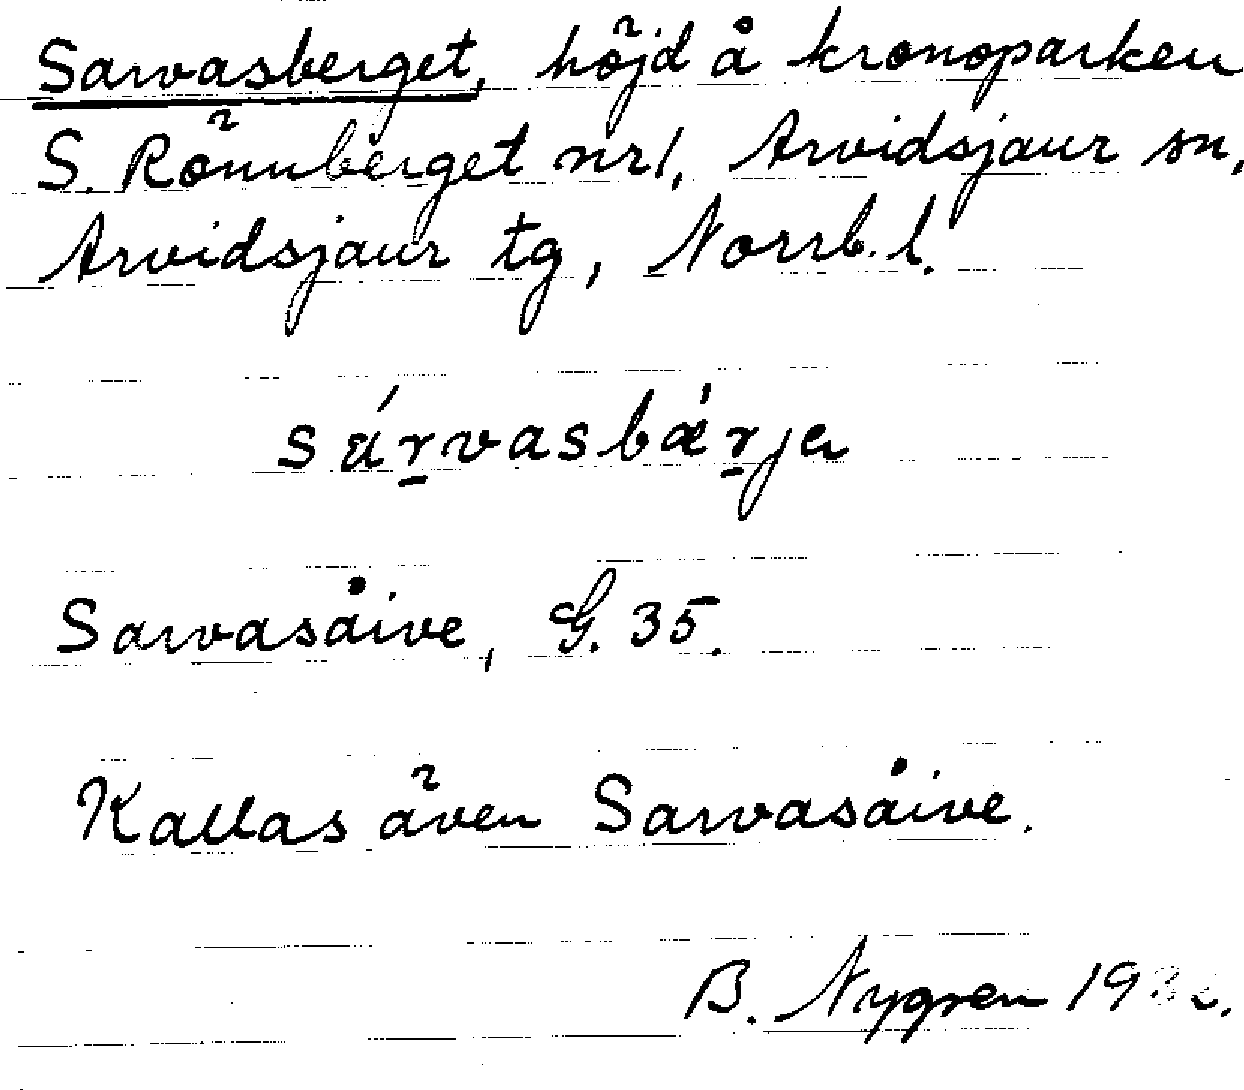 Sarvasberget, höjd å kronoparken
S. Rönnberget nr 1, Arvidsjaur sn,
Arvidsjaur tg, Norrb. l.
sárvasbǽrja
Sarvasåive, G. 35.
Kallas även Sarvasåive.
B. Nygren